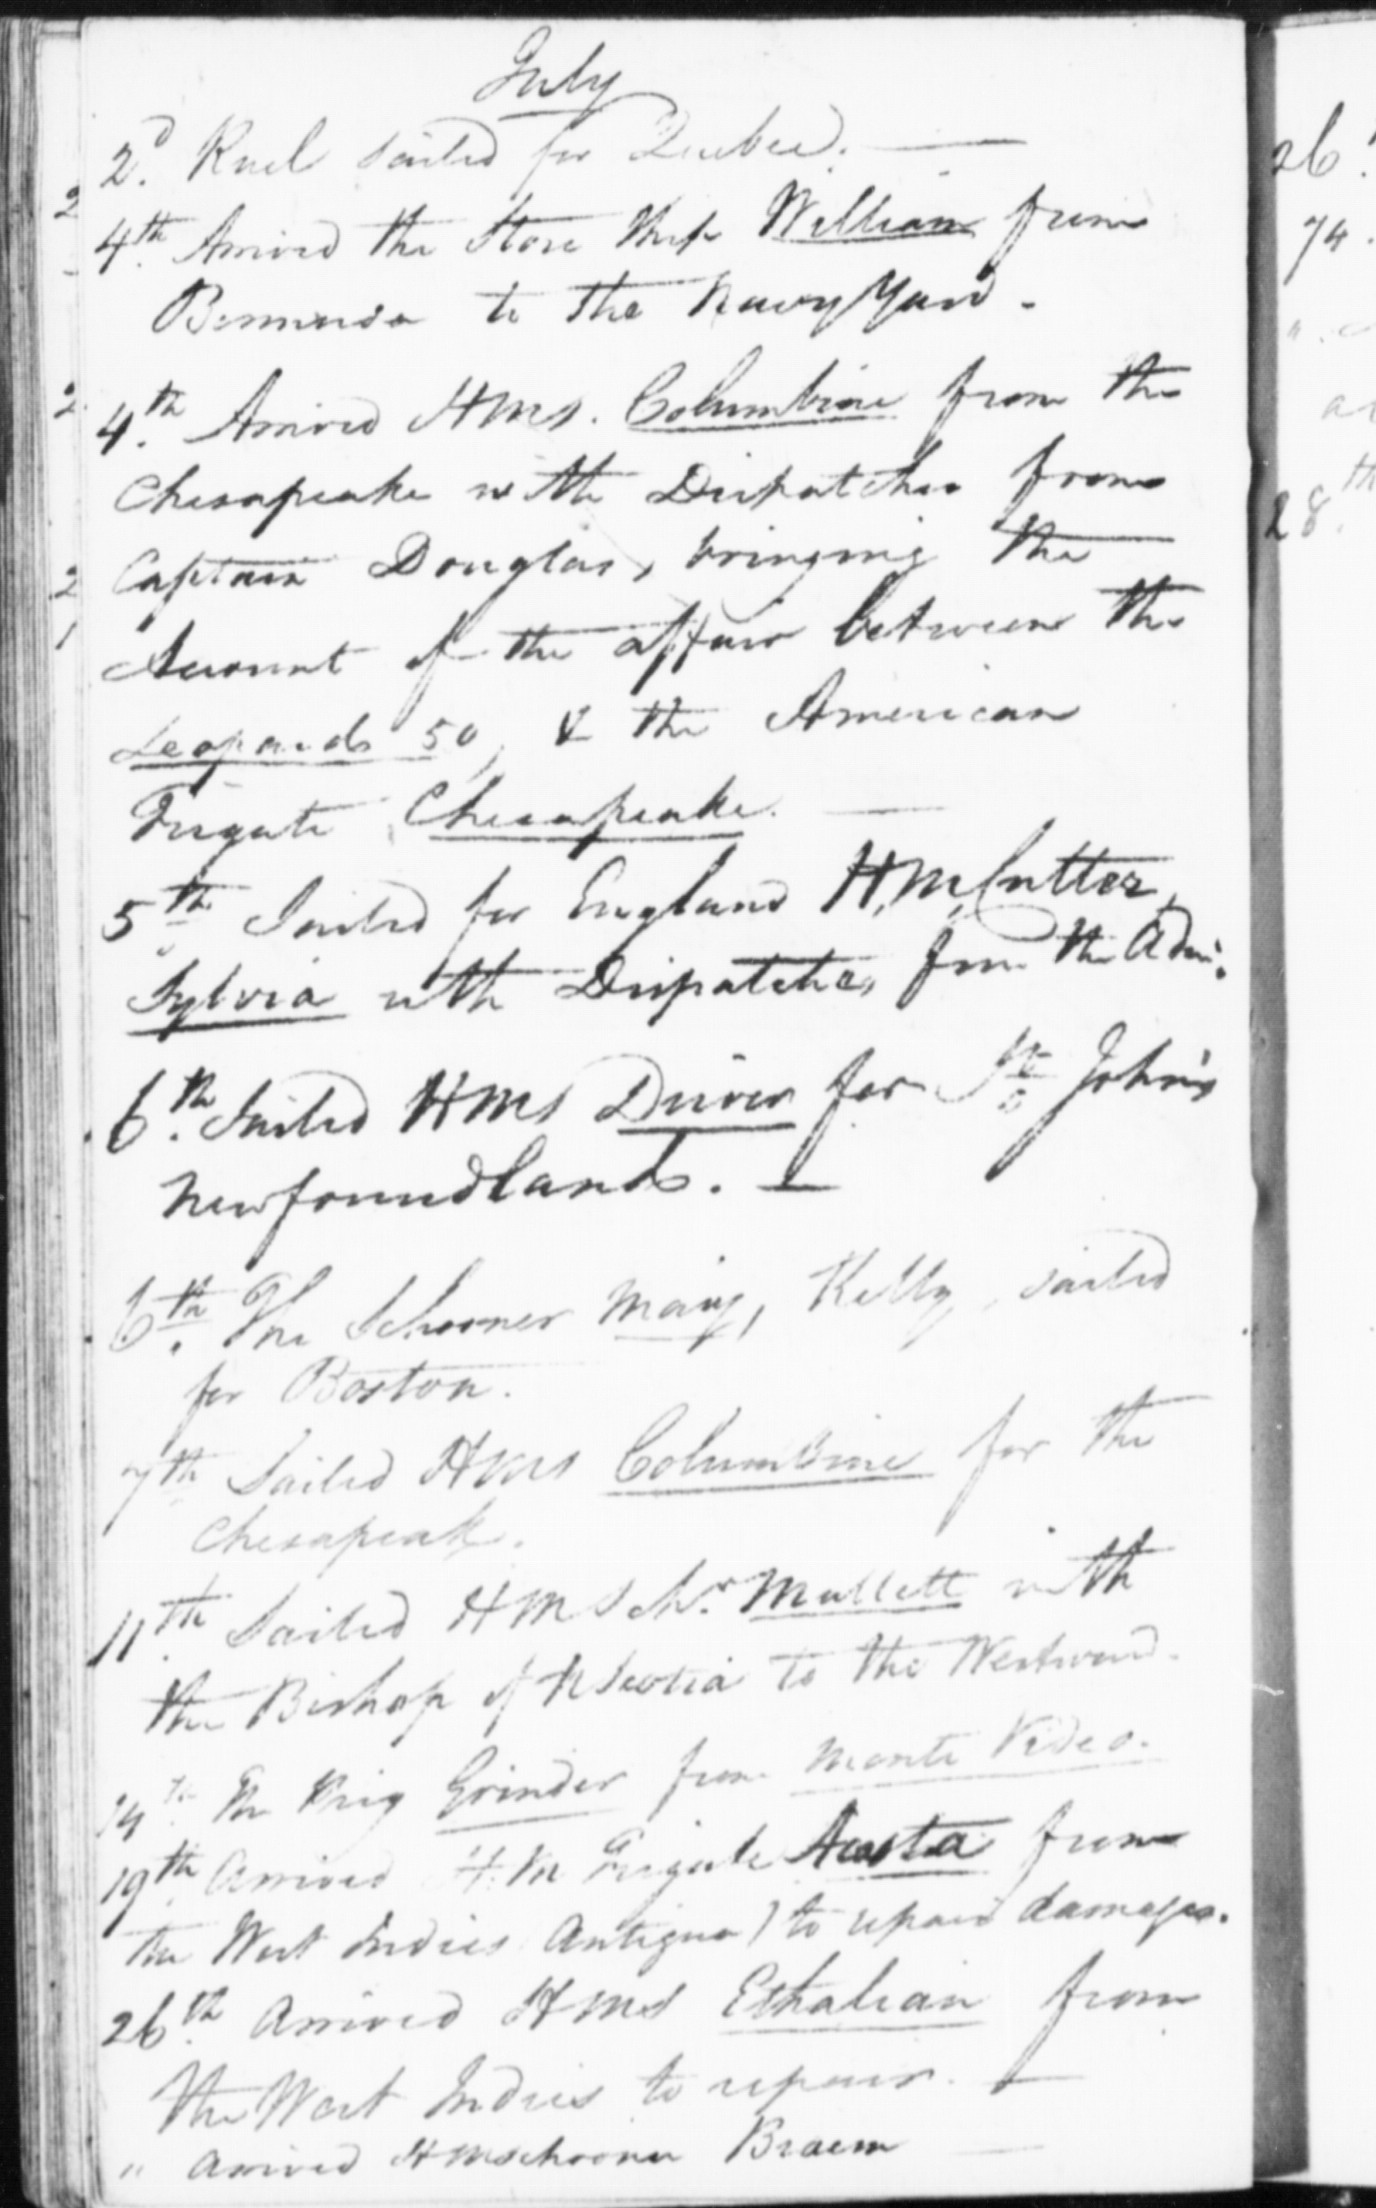 July
2d. Ruel Sailed for Quebec.
4th. Arrived the Store Ship William from
Bermuda to the Navy Yard.
4th. Arrived HMS. Columbine from the
Chesapeake with Dispatches from
Captain Douglas, bringing the
Account of the affair between the
Leopards 50, & the American
Frigate Chesapeake.
5th. Sailed for England H.M. Cutter,
Sylvia with Dispatches from the Adm:
6th. Sailed HMS Driver for St. John's
Newfoundland.
6th. The Schooner Mary, Kelly, sailed
for Boston.
7th Sailed HMS Columbine for the
Chesapeak.
11th. Sailed HM Schr. Mullett with
the Bishop of N Scotia to the Westward.
14th. The Brig Grinder from Monte Video.
19th. Arrived H.M Frigate Acasta from
the West Indies Antigua) to repair damages.
26th. Arrived HMS Ethalian from
the West Indies to repair.
" Arrived HM Schooner Bream
26
74.
28th